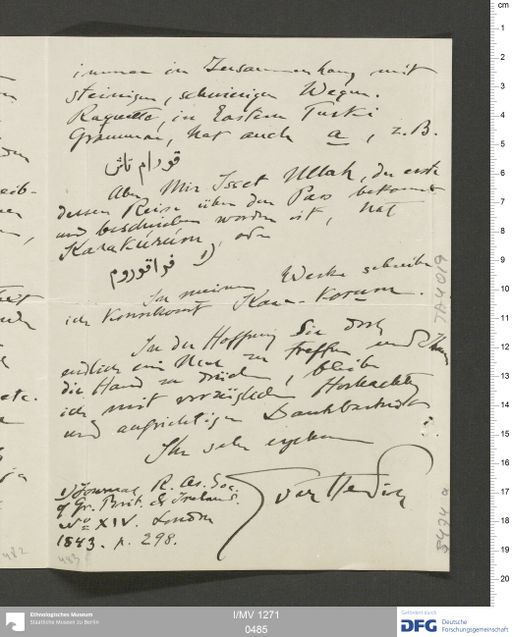 immer im Zusammenhang mit
steinigen, schwierigen Wegen.
Raquette, in Eastern Turki
Grammar, hat auch a, z.B.
قورام تاش
Aber Mir Isset Ullah, der erste
dessen Reise über den Pass bekannt
und beschrieben worden ist, hat
Karakurum, oder
قراقوروم 1)
In meinem Werke schreibe
ich konsekvent Kara-korum.
In der Hoffnung Sie doch
endlich ein Mal zu treffen und Ihnen
die Hand zu drücken, bleibe
ich mit vorzüglicher Hochachtung
und aufrichtiger Dankbarkeit
Ihr sehr ergebener
Sven Hedin
1) Journal R. As. Soc.
of Gr. Brit. & Ireland.
No XIV. London
1843. p. 298.
TA 4019
483
482
etc.
ja
cm
1
2
3
4
5
6
7
8
9
10
11
12
13
14
15
16
17
18
19
20
Ethnologisches Museum
Staatliche Museen zu Berlin
I/MV 1271
0485
Gefördert durch
DFG Deutsche
Forschungsgemeinschaft